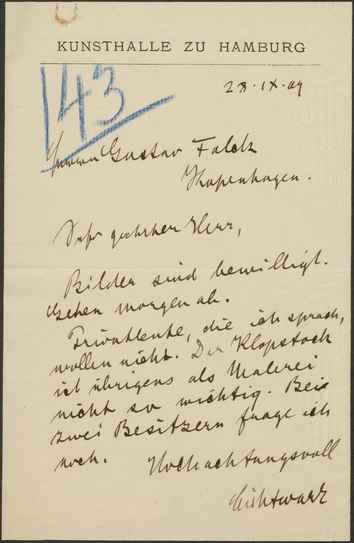 KUNSTHALLE ZU HAMBURG
143
28·IX·09
Herrn Gustav Falck
Kopenhagen.
Sehr geehrter Herr,
Bilder sind bewilligt.
Gehen morgen ab.
Privatleute, die ich sprach,
wollen nicht. Der Klopstock
ist übrigens als Malerei
nicht so wichtig. Bei
zwei Besitzern frage ich
noch. Hochachtungsvoll
Lichtwark